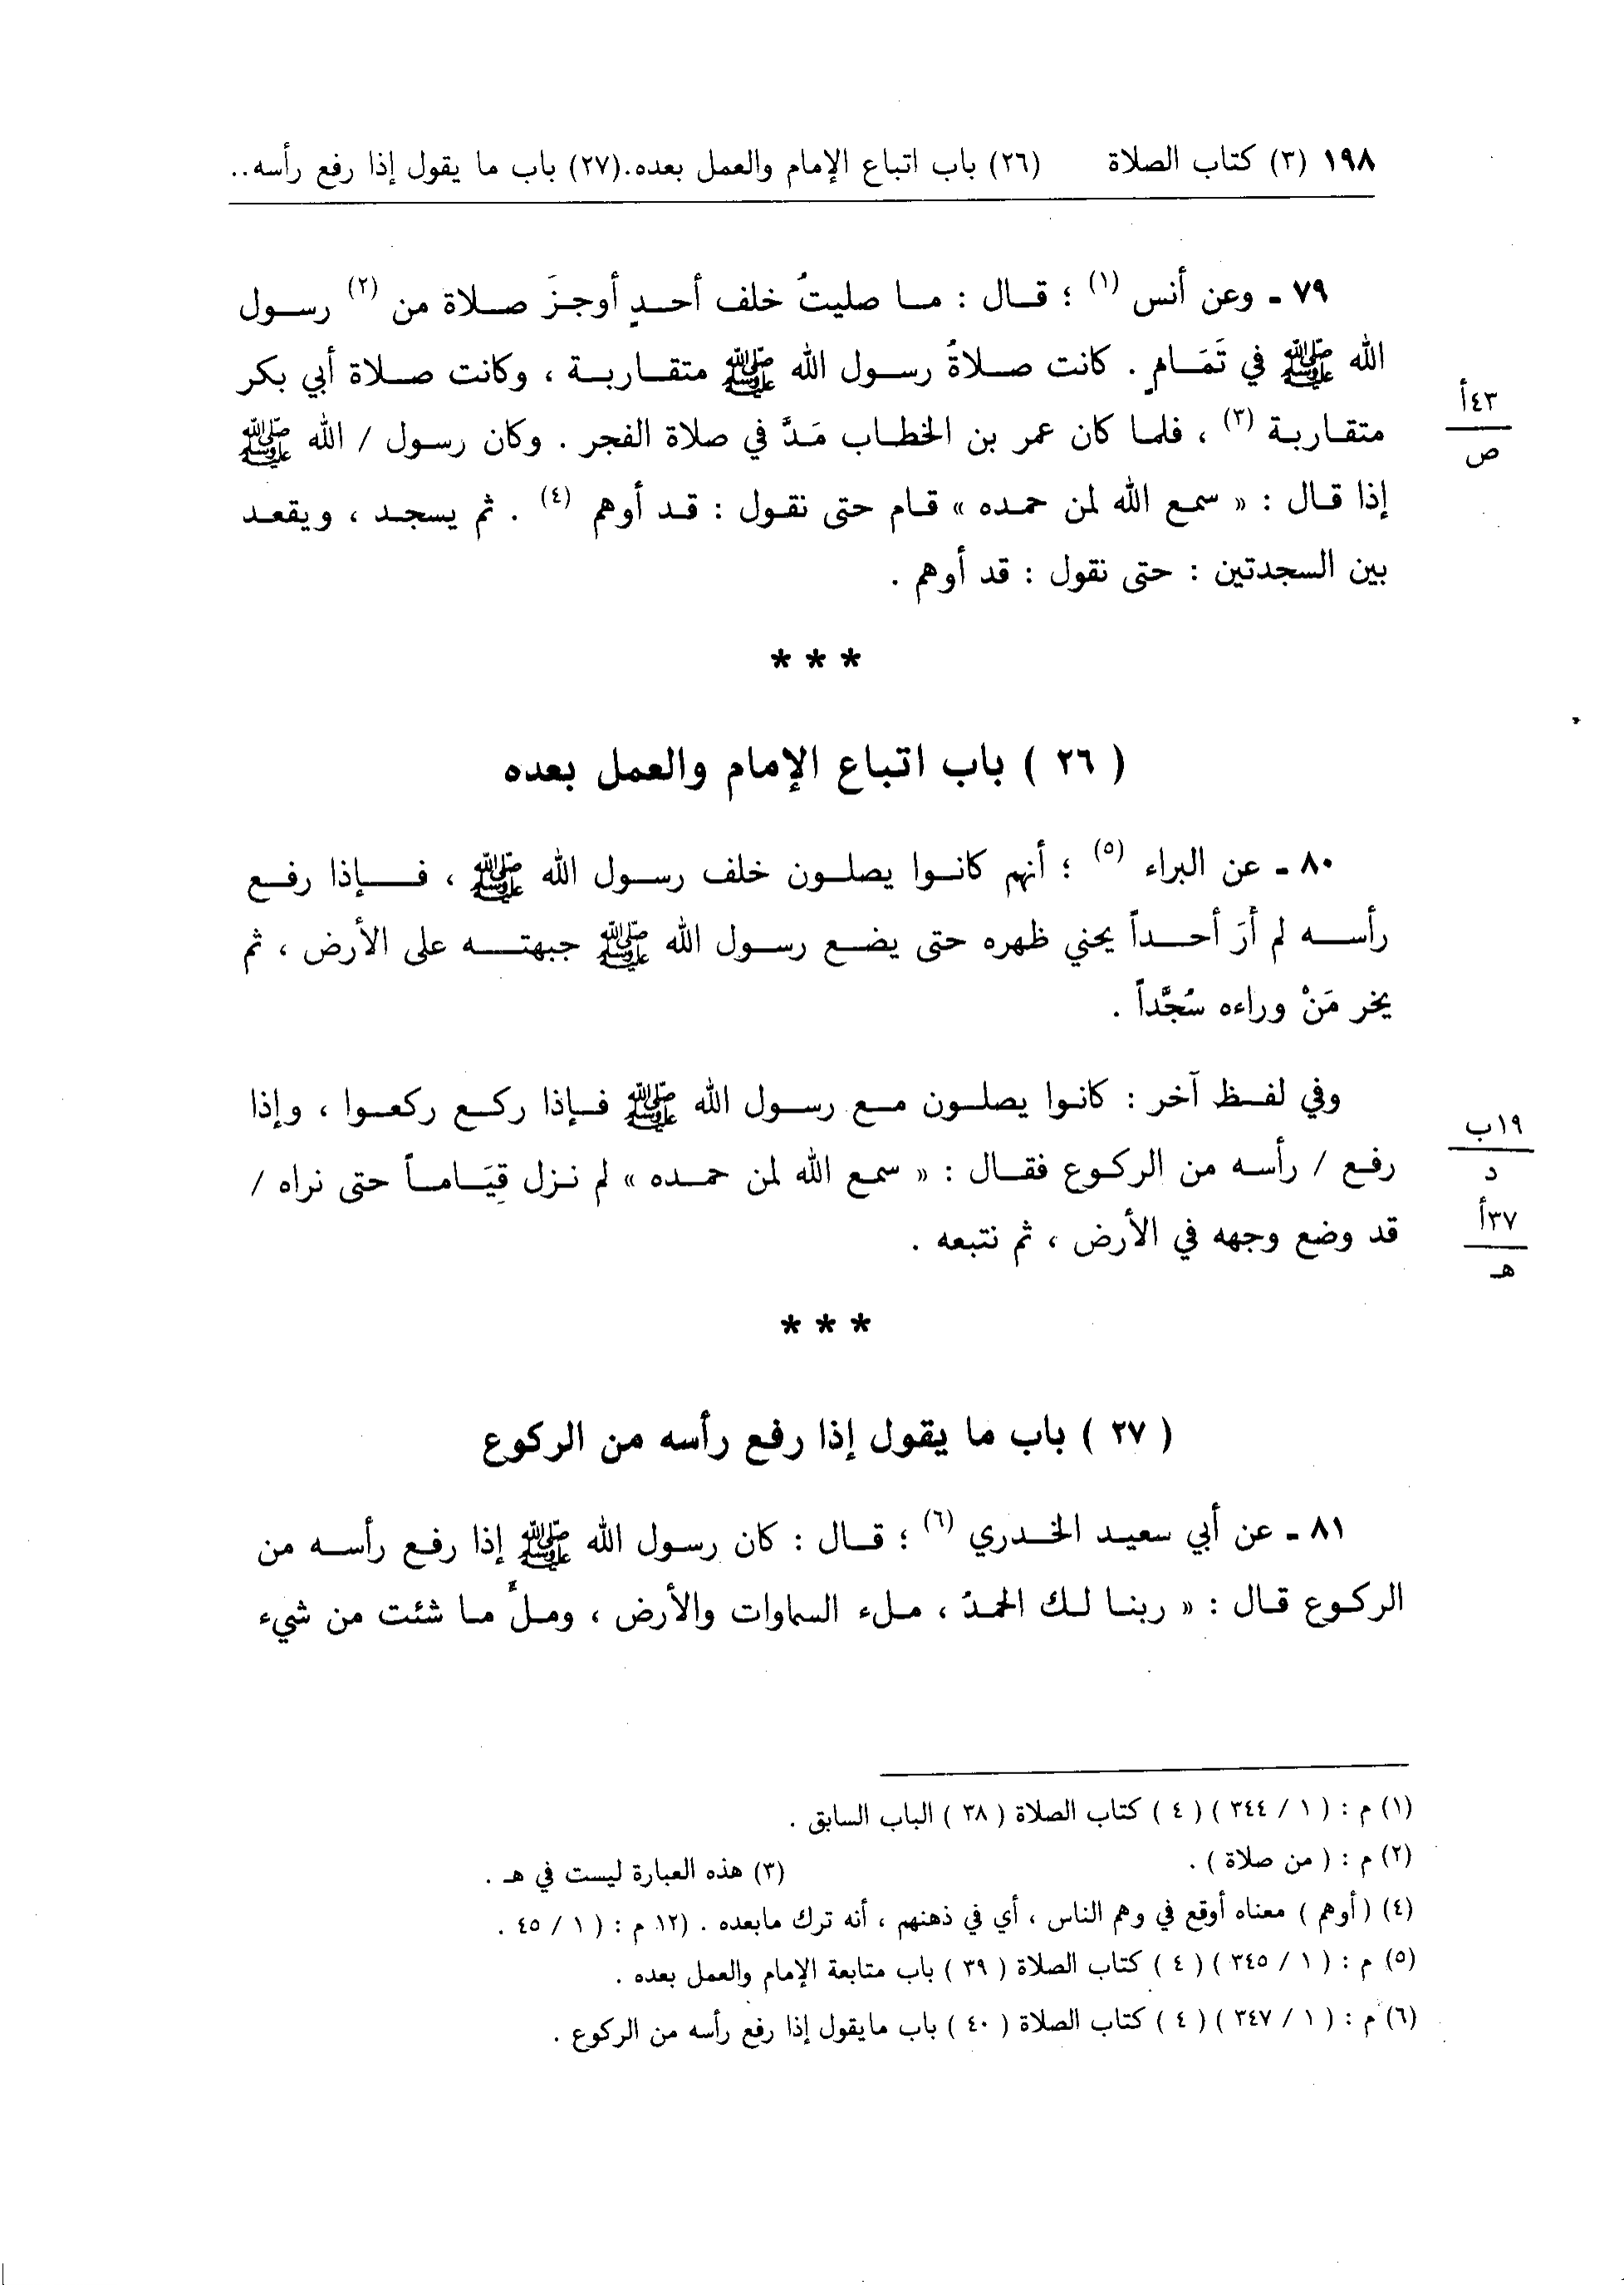 ١٩٨ (٣) كتاب الصلاة (٢٦) باب اتباع الإمام والعمل بعده.(٢٧) باب ما يقول إذا رفع رأسه..
٧٩ - وعن أنس (١) ؛ قال : ما صليتُ خلف أحدٍ أوجزَ صلاة من (٢) رسول
الله ﷺ في تَمَامٍ . كانت صلاةُ رسول الله ﷺ متقاربة ، وكانت صلاة أبي بكر
متقاربة (٣) ، فلما كان عمر بن الخطاب مَدَّ في صلاة الفجر . وكان رسول / الله ﷺ
٤٣أ
ص
إذا قال : « سمع الله لمن حمده » قام حتى نقول : قد أوهم (٤) . ثم يسجد ، ويقعد
بين السجدتين : حتى نقول : قد أوهم .
* * *
( ٢٦ ) باب اتباع الإمام والعمل بعده
٨٠ - عن البراء (٥) ؛ أنهم كانوا يصلون خلف رسول الله ﷺ ، فإذا رفع
رأسه لم أَرَ أحداً يحني ظهره حتى يضع رسول الله ﷺ جبهته على الأرض ، ثم
يخر مَنْ وراءه سُجَّداً .
وفي لفظ آخر : كانوا يصلون مع رسول الله ﷺ فإذا ركع ركعوا ، وإذا
١٩ب
د
رفع / رأسه من الركوع فقال : « سمع الله لمن حمده » لم نزل قِيَاماً حتى نراه /
٣٧أ
هـ
قد وضع وجهه في الأرض ، ثم نتبعه .
* * *
( ٢٧ ) باب ما يقول إذا رفع رأسه من الركوع
٨١ - عن أبي سعيد الخدري (٦) ؛ قال : كان رسول الله ﷺ إذا رفع رأسه من
الركوع قال : « ربنا لك الحمدُ ، ملء السماوات والأرض ، وملءُ ما شئت من شيء
(١) م : ( ١ / ٣٤٤ ) ( ٤ ) كتاب الصلاة ( ٣٨ ) الباب السابق .
(٢) م : ( من صلاة ) . (٣) هذه العبارة ليست في هـ .
(٤) ( أوهم ) معناه أوقع في وهم الناس ، أي في ذهنهم ، أنه ترك مابعده . (١٢ م : ( ١ / ٤٥ .
(٥) م : ( ١ / ٣٤٥ ) ( ٤ ) كتاب الصلاة ( ٣٩ ) باب متابعة الإمام والعمل بعده .
(٦) م : ( ١ / ٣٤٧ ) ( ٤ ) كتاب الصلاة ( ٤٠ ) باب مايقول إذا رفع رأسه من الركوع .